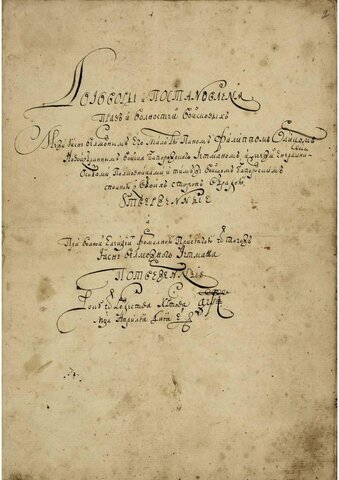 Договоры и Постановленѧ
Правъ и волностей Войсковыхъ
Межи Ясне велможнымъ Его Млстю Паномъ Филиппомъ Орликомъ
Новоизбраннымъ Войска Запорожского Гетманомъ, и межи Енералними
Особами Полковниками и тимже Войскомъ Запорозскимъ
з обоихъ сторонъ Обрадою
Утверженніе
При волной Елекціи Формалною Присягою ѿ тогожъ
Ясне велможного Гетмана
Потверженніе
Року ѿ Рождества Хрстова
мца Априлѧ дня